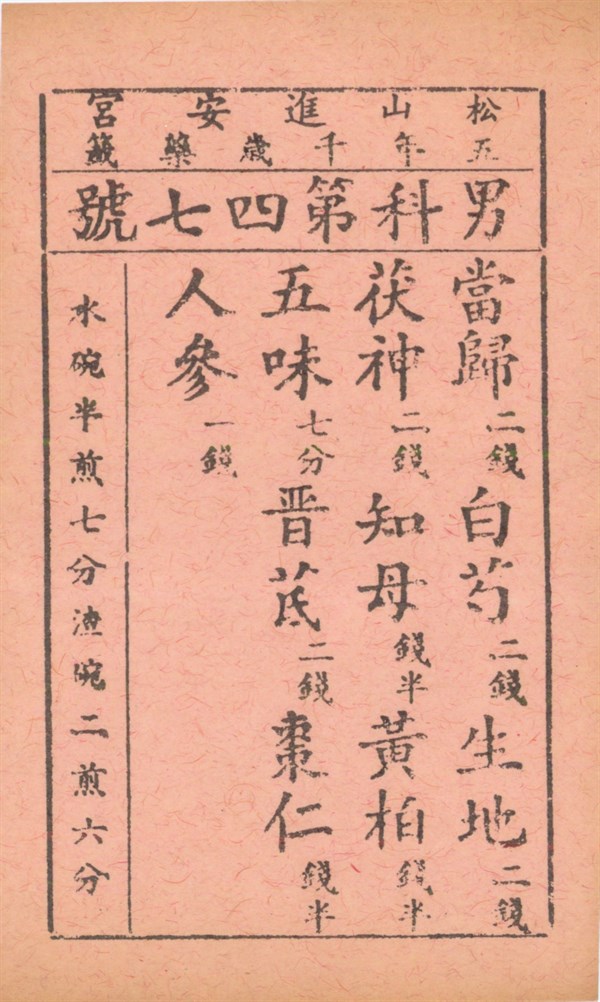 松山進安宮
五年千歲藥籤
男科第四七號
當歸二錢 白芍二錢 生地二錢
茯神二錢 知母錢半 黃柏錢半
五味七分 晋芪二錢 棗仁錢半
人參一錢
水碗半煎七分渣碗二煎六分